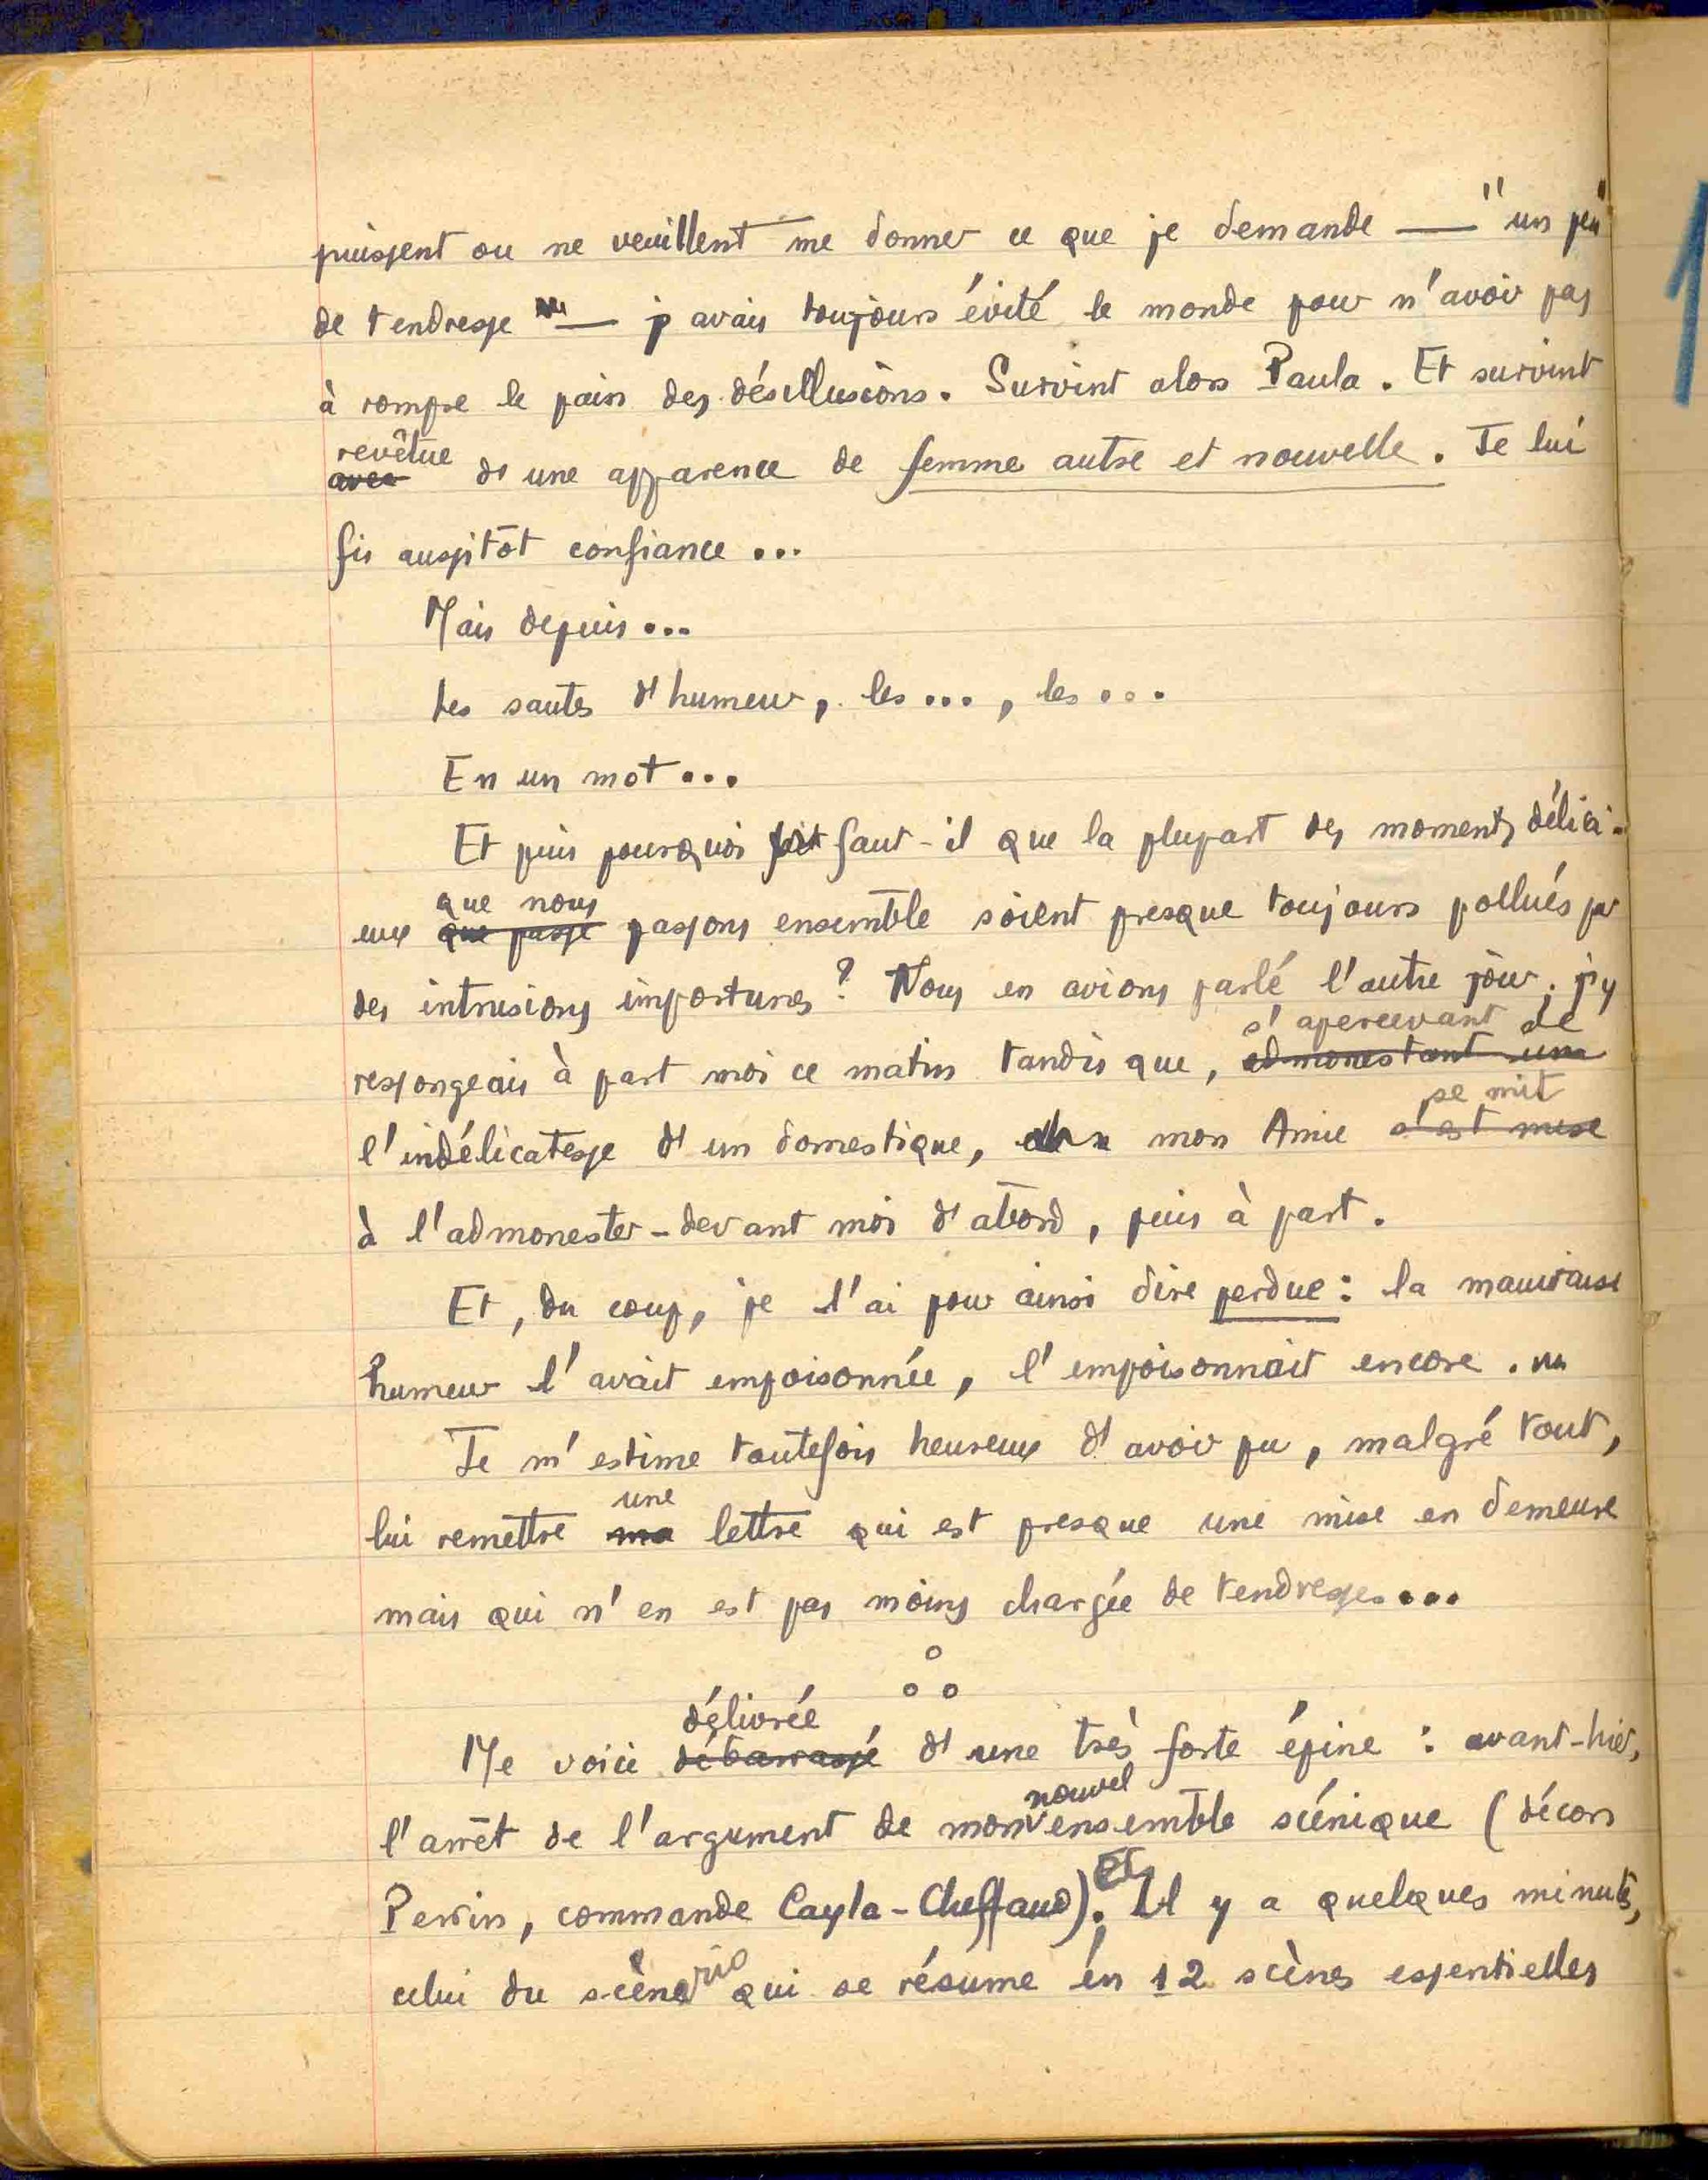 puissent ou ne veuillent me donner ce que je demande — "un peu"
de tendresse — j'avais toujours évité le monde pour n'avoir pas
à rompre le pain des désillusions. Survint alors Paula. Et survint
revêtue
avec d'une apparence de femme autre et nouvelle. Je lui
fis aussitôt confiance...
Mais depuis...
Les sautes d'humeur, les..., les...
En un mot...
Et puis pourquoi faut-il que la plupart des moments délici-
que nous
eux que passe passons ensemble soient presque toujours pollués par
des intrusions importunes? Nous en avions parlé l'autre jour; j'y
s'apercevant de
resongeais à part moi ce matin tandis que, admonestant une
se mit
l'indélicatesse d'un domestique, mon Amie s'est mise
à l'admonester - devant moi d'abord, puis à part.
Et, du coup, je l'ai pour ainsi dire perdue: la mauvaise
humeur l'avait empoisonnée, l'empoisonnait encore.
Je m'estime toutefois heureux d'avoir pu, malgré tout,
une
lui remettre ma lettre qui est presque une mise en demeure
mais qui n'en est pas moins chargée de tendresses...
délivrée
Me voici débarrassé d'une très forte épine: avant-hier,
nouvel
l'arrêt de l'argument de mon ensemble scénique (décors
Et
Perrin, commande Cayla-Cheffaud). Il y a quelques minutes,
celui du scénario qui se résume en 12 scènes essentielles
1